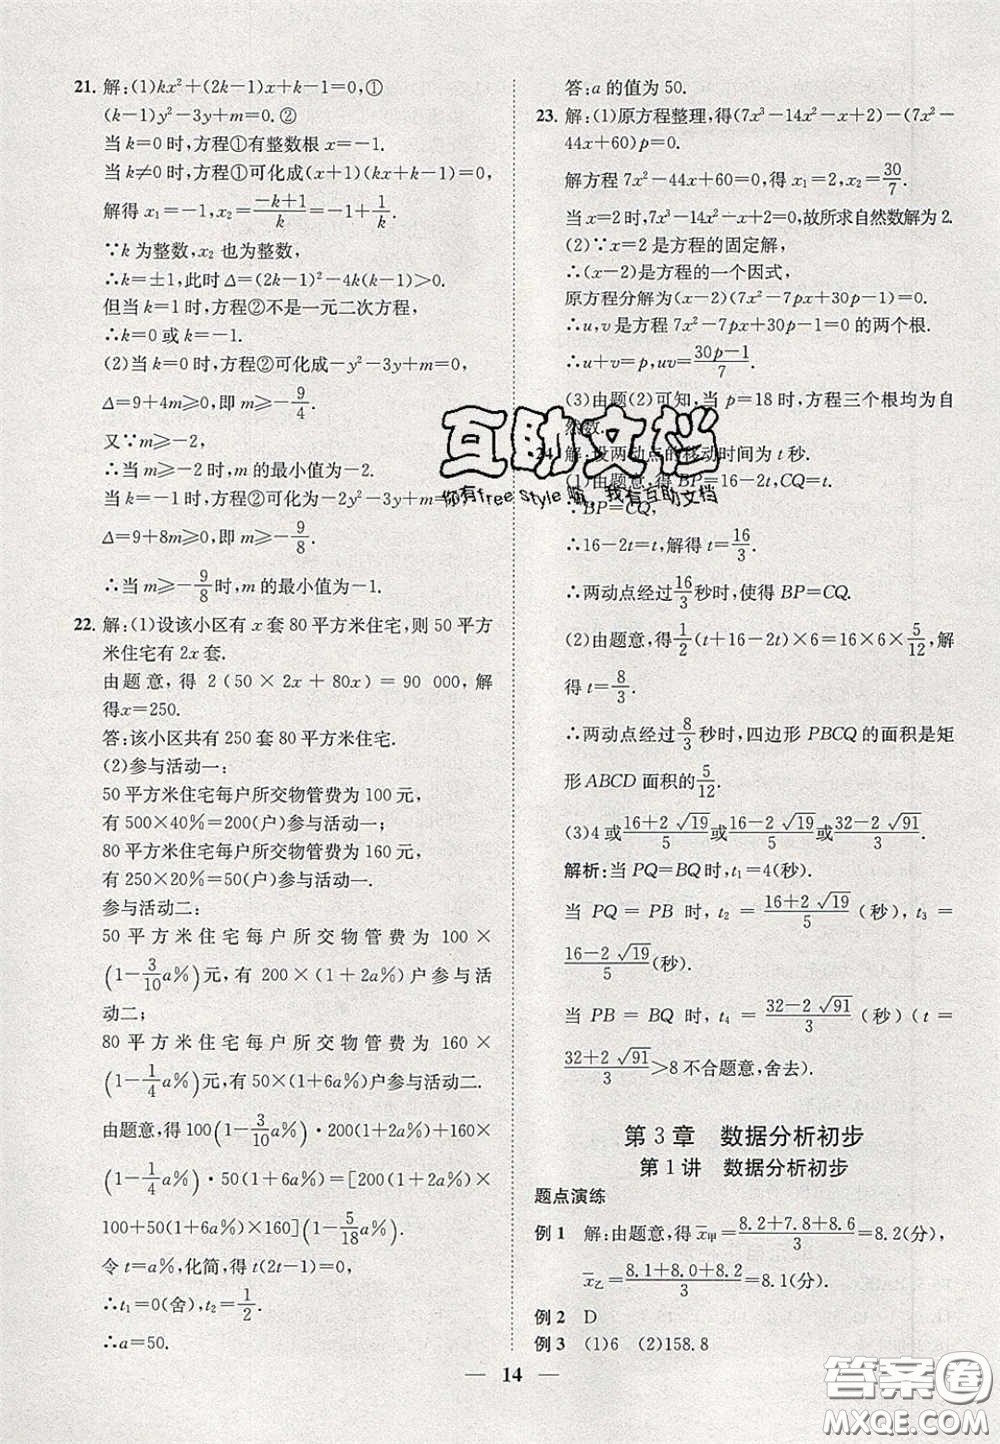 21. 解:(1)kx²+(2k-1)x+k-1=0,①
(k-1)y²-3y+m=0.②
当 k=0时,方程①有整数根 x=-1.
当 k≠0时,方程①可化成(x+1)(kx+k-1)=0,
解得 x₁=-1,x₂=\frac{-k+1}{k}=-1+\frac{1}{k}.
∵k 为整数,x₂ 也为整数,
∴k=±1,此时 Δ=(2k-1)²-4k(k-1)>0.
但当 k=1时,方程②不是一元二次方程,
∴k=0 或 k=-1.
(2)当 k=0 时,方程②可化成-y²-3y+m=0,
Δ=9+4m≥0,即 m≥-\frac{9}{4}.
又∵m≥-2,
∴当 m≥-2时,m 的最小值为-2.
当 k=-1 时,方程②可化为-2y²-3y+m=0,
Δ=9+8m≥0,即 m≥-\frac{9}{8}.
∴当 m≥-\frac{9}{8}时,m 的最小值为-1.
22. 解:(1)设该小区有 x 套 80 平方米住宅,则 50 平方
米住宅有 2x 套.
由题意,得 2(50×2x+80x)=90 000,解
得x=250.
答:该小区共有 250 套 80 平方米住宅.
(2)参与活动一:
50 平方米住宅每户所交物管费为 100 元,
有 500×40%=200(户)参与活动一;
80 平方米住宅每户所交物管费为 160 元,
有 250×20%=50(户)参与活动一.
参与活动二:
50 平方米住宅每户所交物管费为 100×
(1-\frac{3}{10}a%)元,有 200×(1+2a%)户参与活
动二;
80 平方米住宅每户所交物管费为 160×
(1-\frac{1}{4}a%)元,有 50×(1+6a%)户参与活动二.
由题意,得100(1-\frac{3}{10}a%)·200(1+2a%)+160×
(1-\frac{1}{4}a%)·50(1+6a%)=[200(1+2a%)×
100+50(1+6a%)×160](1-\frac{5}{18}a%).
令 t=a%,化简,得 t(2t-1)=0,
∴t₁=0(舍),t₂=\frac{1}{2}.
∴a=50.
答:a 的值为 50.
23. 解:(1)原方程整理,得(7x³-14x²-x+2)-(7x²-
44x+60)p=0.
解方程 7x²-44x+60=0,得 x₁=2,x₂=\frac{30}{7}.
当 x=2时,7x³-14x²-x+2=0,故所求自然数解为2.
(2)∵x=2 是方程的固定解,
∴(x-2)是方程的一个因式,
原方程分解为(x-2)(7x²-7px+30p-1)=0
∴u,v是方程 7x²-7px+30p-1=0 的两个根.
∴u+v=p,uv=\frac{30p-1}{7}.
(3)由题(2)可知,当 p=18 时,方程三个根均为自
然数.
24. 解:设两动点的移动时间为 t 秒.
(1)由题意,得 BP=16-2t,CQ=t.
∵BP=CQ,
∴16-2t=t,解得 t=\frac{16}{3}.
∴两动点经过\frac{16}{3}秒时,使得 BP=CQ.
(2)由题意,得\frac{1}{2}(t+16-2t)×6=16×6×\frac{5}{12},解
得 t=\frac{8}{3}.
∴两动点经过\frac{8}{3}秒时,四边形 PBCQ 的面积是矩
形 ABCD 面积的\frac{5}{12}.
(3)4 或\frac{16+2√19}{5}或\frac{16-2√19}{5}或\frac{32-2√91}{3}.
解析:当 PQ=BQ 时,t₁=4(秒).
当 PQ=PB 时,t₂=\frac{16+2√19}{5}(秒),t₃=
\frac{16-2√19}{5}(秒).
当 PB=BQ 时,t₄=\frac{32-2√91}{3}(秒)(t=
\frac{32+2√91}{3}>8 不合题意,舍去).
第 3 章 数据分析初步
第 1 讲 数据分析初步
题点演练
例 1 解:由题意,得 x̄甲=\frac{8.2+7.8+8.6}{3}=8.2(分),
x̄乙=\frac{8.1+8.0+8.2}{3}=8.1(分).
例 2 D
例 3 (1)6 (2)158.8
14
互助文档
你有free Style 嘛,我有互助文档
答案圈
MXQE.COM